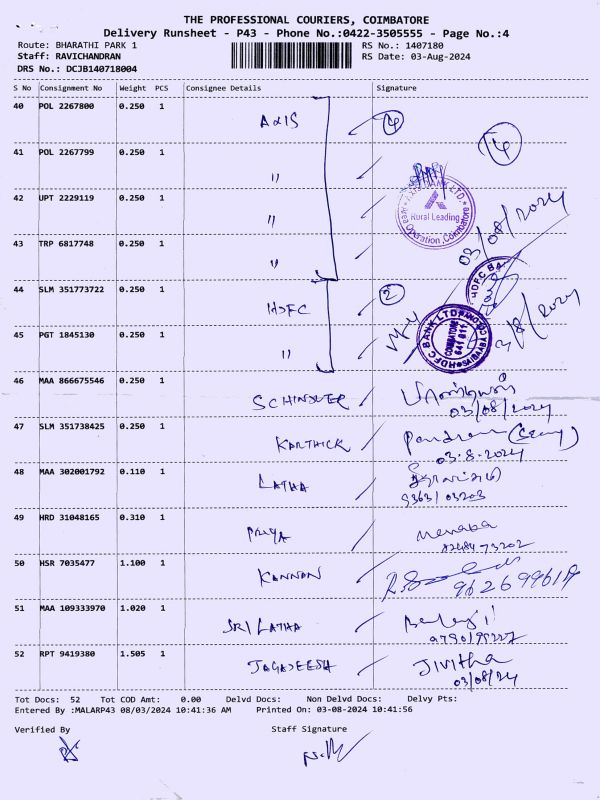 THE PROFESSIONAL COURIERS, COIMBATORE
Delivery Runsheet - P43 - Phone No.:0422-3505555 - Page No.:4
Route: BHARATHI PARK 1
RS No.: 1407180
Staff: RAVICHANDRAN
RS Date: 03-Aug-2024
DRS No.: DCJB140718004
S No Consignment No Weight PCS Consignee Details Signature
40 POL 2267800 0.250 1 AxIS 4
14
41 POL 2267799 0.250 1 "
42 UPT 2229119 0.250 1 "
AXIS BANK LTD.
Rural Leading
Operation, Coimbatore
03/08/2024
43 TRP 6817748 0.250 1 "
44 SLM 351773722 0.250 1 HDFC 2
HDFC BA
HDFC BANK LTD
COIMBATORE
641 011
SAIBABA
/8/2024
45 PGT 1845130 0.250 1 "
46 MAA 866675546 0.250 1 SCHINDLER
03/08/2024
47 SLM 351738425 0.250 1 KARTHICK
03.8.2024
48 MAA 302001792 0.110 1 LATHA
49 HRD 31048165 0.310 1 PRIYA
50 HSR 7035477 1.100 1 KANNAN
51 MAA 109333970 1.020 1 SRI LATHA
52 RPT 9419380 1.505 1 JAGADEESH Jivitha
03/08/24
Tot Docs: 52 Tot COD Amt: 0.00 Delvd Docs: Non Delvd Docs: Delvy Pts:
Entered By :MALARP43 08/03/2024 10:41:36 AM Printed On: 03-08-2024 10:41:56
Verified By Staff Signature